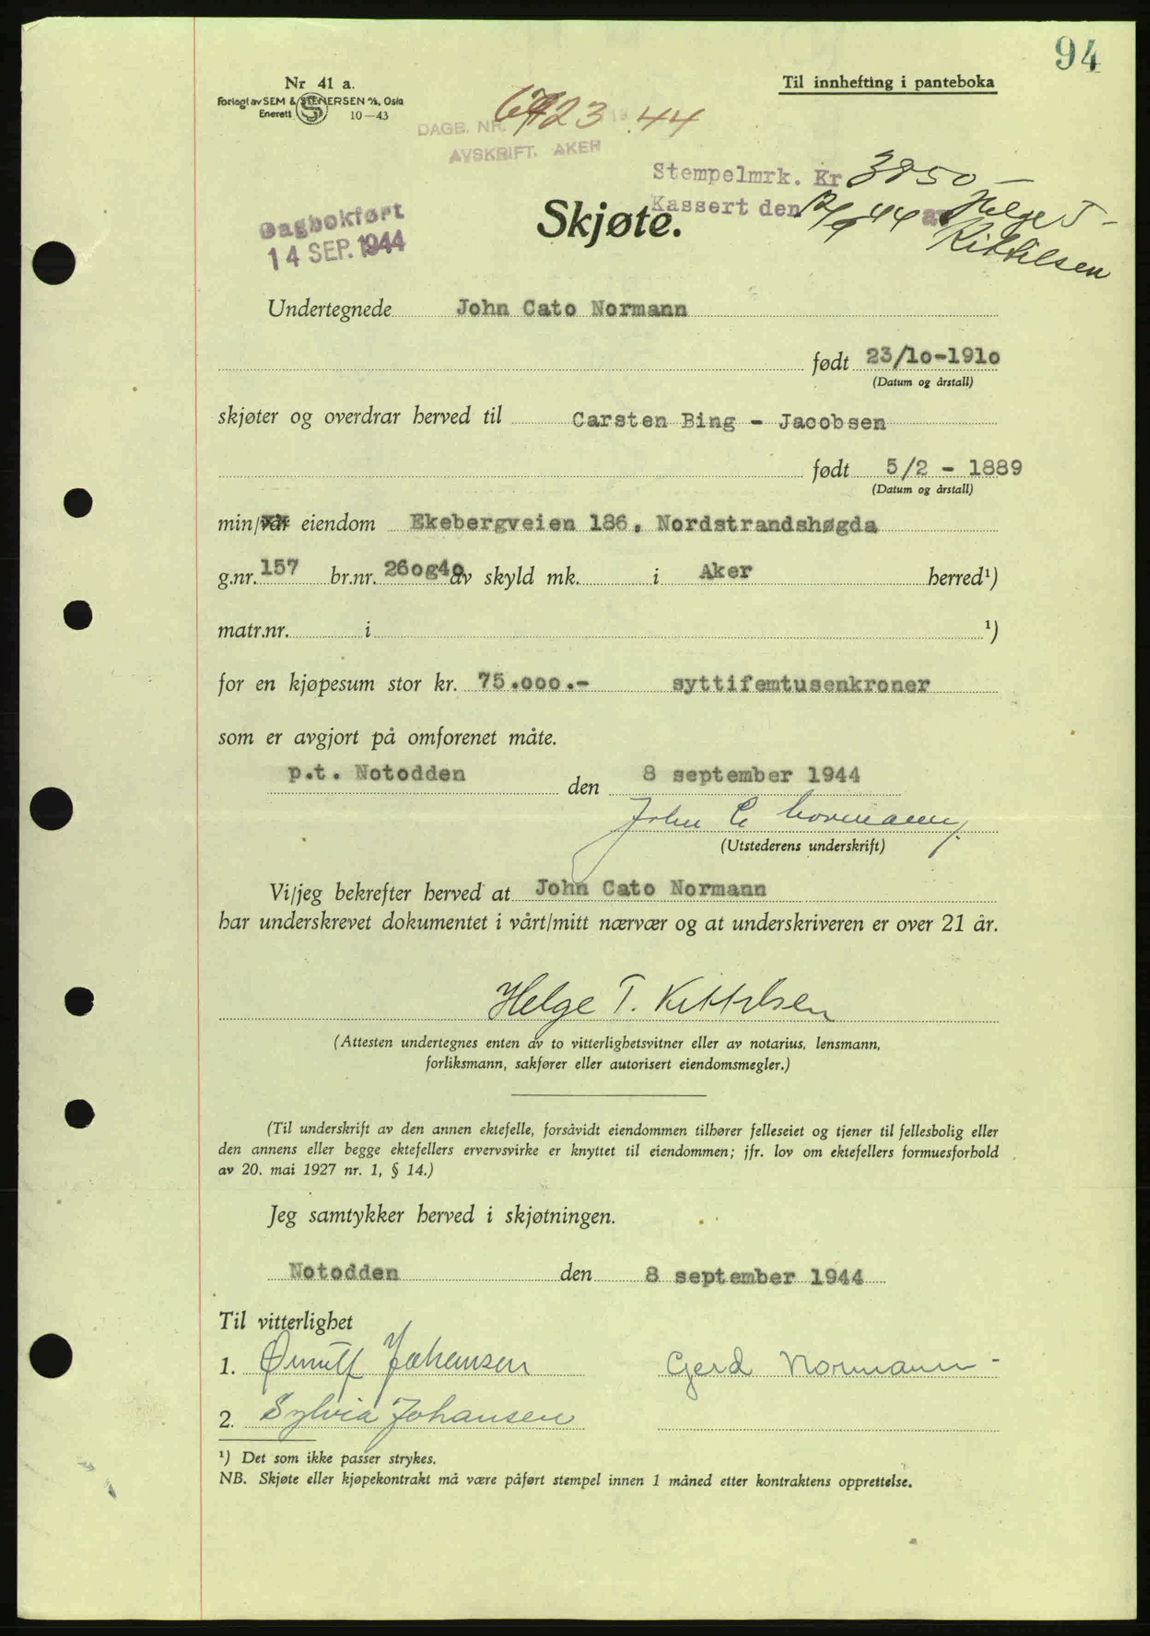 94
Nr 41 a.
Forlagt av SEM & STENERSEN A/S, Oslo
Enerett 10-43
Til innhefting i panteboka
DAGB. NR. 6723 19 44
AVSKRIFT. AKER
Stempelmrk. Kr 3850-
Kassert den 12/9 44 av Helge T. Kittilsen
Dagbokført
14 SEP. 1944
Skjøte.
Undertegnede John Cato Normann
født 23/10-1910
(Datum og årstall)
skjøter og overdrar herved til Carsten Bing - Jacobsen
født 5/2 - 1889
(Datum og årstall)
min/vår eiendom Ekebergveien 186, Nordstrandshøgda
g.nr. 157 br.nr. 26 og 40 av skyld mk. i Aker herred¹)
matr.nr. i ¹)
for en kjøpesum stor kr. 75.000.- syttifemtusenkroner
som er avgjort på omforenet måte.
p.t. Notodden den 8 september 1944
John C Normann.
(Utstederens underskrift)
Vi/jeg bekrefter herved at John Cato Normann
har underskrevet dokumentet i vårt/mitt nærvær og at underskriveren er over 21 år.
Helge T. Kittilsen
(Attesten undertegnes enten av to vitterlighetsvitner eller av notarius, lensmann,
forliksmann, sakfører eller autorisert eiendomsmegler.)
(Til underskrift av den annen ektefelle, forsåvidt eiendommen tilhører felleseiet og tjener til fellesbolig eller
den annens eller begge ektefellers ervervsvirke er knyttet til eiendommen; jfr. lov om ektefellers formuesforhold
av 20. mai 1927 nr. 1, § 14.)
Jeg samtykker herved i skjøtningen.
Notodden den 8 september 1944
Til vitterlighet
1. Johansen Gerd Normann -
2. Sylvia Johansen
¹) Det som ikke passer strykes.
NB. Skjøte eller kjøpekontrakt må være påført stempel innen 1 måned etter kontraktens opprettelse.